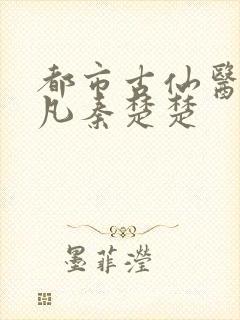 都市古仙醫
凡秦楚楚
墨菲瀅